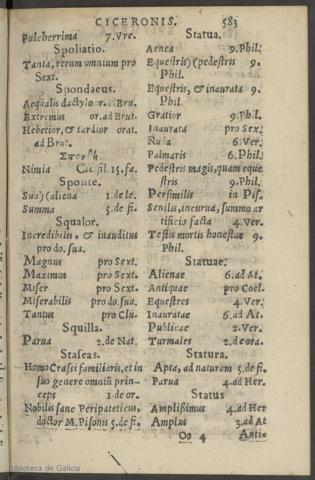 CICERONIS. 583
Pulcherrima 7.Vre.
Spoliatio.
Tanta, rerum omnium pro
Sext.
Spondaeus.
Aequalis dactylo or.ad Bru.
Extremus or.ad Brut.
Hebetior, & tardior orat.
ad Brut.
Nimia Cic. fil. 15. fa.
Sponte.
Sua) (aliena 1.de le.
Summa 5.de fi.
Squalor.
Incredibilis, & inauditus
pro do.sua.
Magnus pro Sext.
Maximus pro Sext.
Miser pro Sext.
Miserabilis pro do.sua.
Tantus pro Clu.
Squilla.
Parua 2.de Nat.
Staseas.
Homo Crassi familiaris, et in
suo genere omniū prin-
ceps 1.de or.
Nobilis sane Peripateticus,
doctor M.Pisonis 5.de fi.
Statua.
Aenea 9.Phil.
Equestris) (pedestris 9.
Phil.
Equestris, & inaurata 9.
Phil.
Gratior 9.Phil.
Inaurata pro Sex.
Nuda 6.Ver.
Palmaris 6.Phil.
Pedestris magis, quam eque
stris 9.Phil.
Persimilis in Pis.
Senilis, incurua, summo ar
tificio facta 4.Ver.
Testis mortis honestae 9.
Phil.
Statuae.
Alienae 6.ad At.
Antiquae pro Coel.
Equestres 4.Ver.
Inauratae 6.ad At.
Publicae 2.Ver.
Turmales 2.de ora.
Statura.
Apta, ad naturam 5.de fi.
Parua 4.ad Her
Status
Amplißimus 4.ad Her
Amplus 3.ad At
Oo 4 Anti=
Biblioteca de Galicia